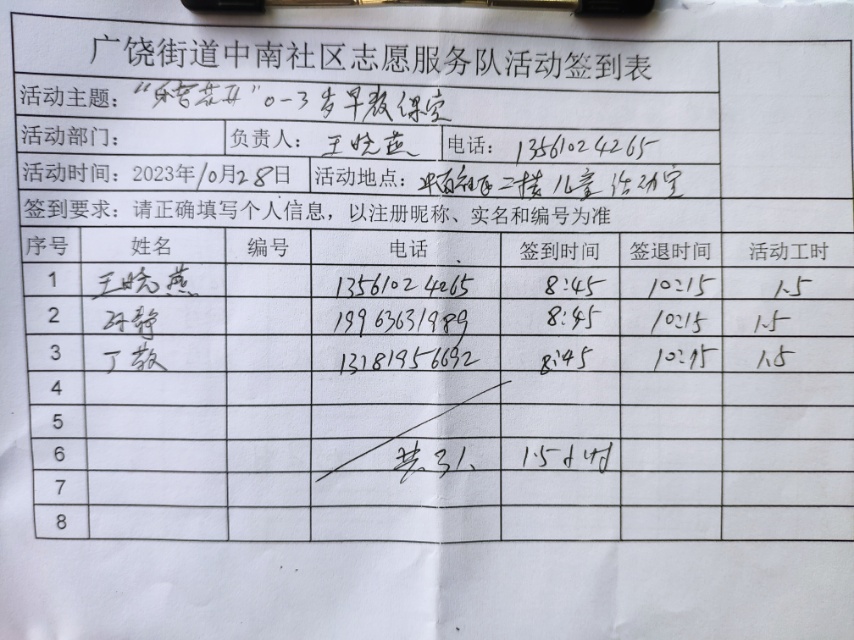 广饶街道中南社区志愿服务队活动签到表
活动主题: 0-3岁早教课堂
活动部门: 负责人: 王晓燕 电话: 13561024265
活动时间: 2023年10月28日 活动地点: 中南社区二楼儿童活动室
签到要求: 请正确填写个人信息，以注册昵称、实名和编号为准
序号 姓名 编号 电话 签到时间 签退时间 活动工时
1 王晓燕 13561024265 8:45 10:15 1.5
2 孙静 19963631989 8:45 10:15 1.5
3 丁敏 13181956692 8:45 10:15 1.5
4
5
6 共3人 1.5小时
7
8